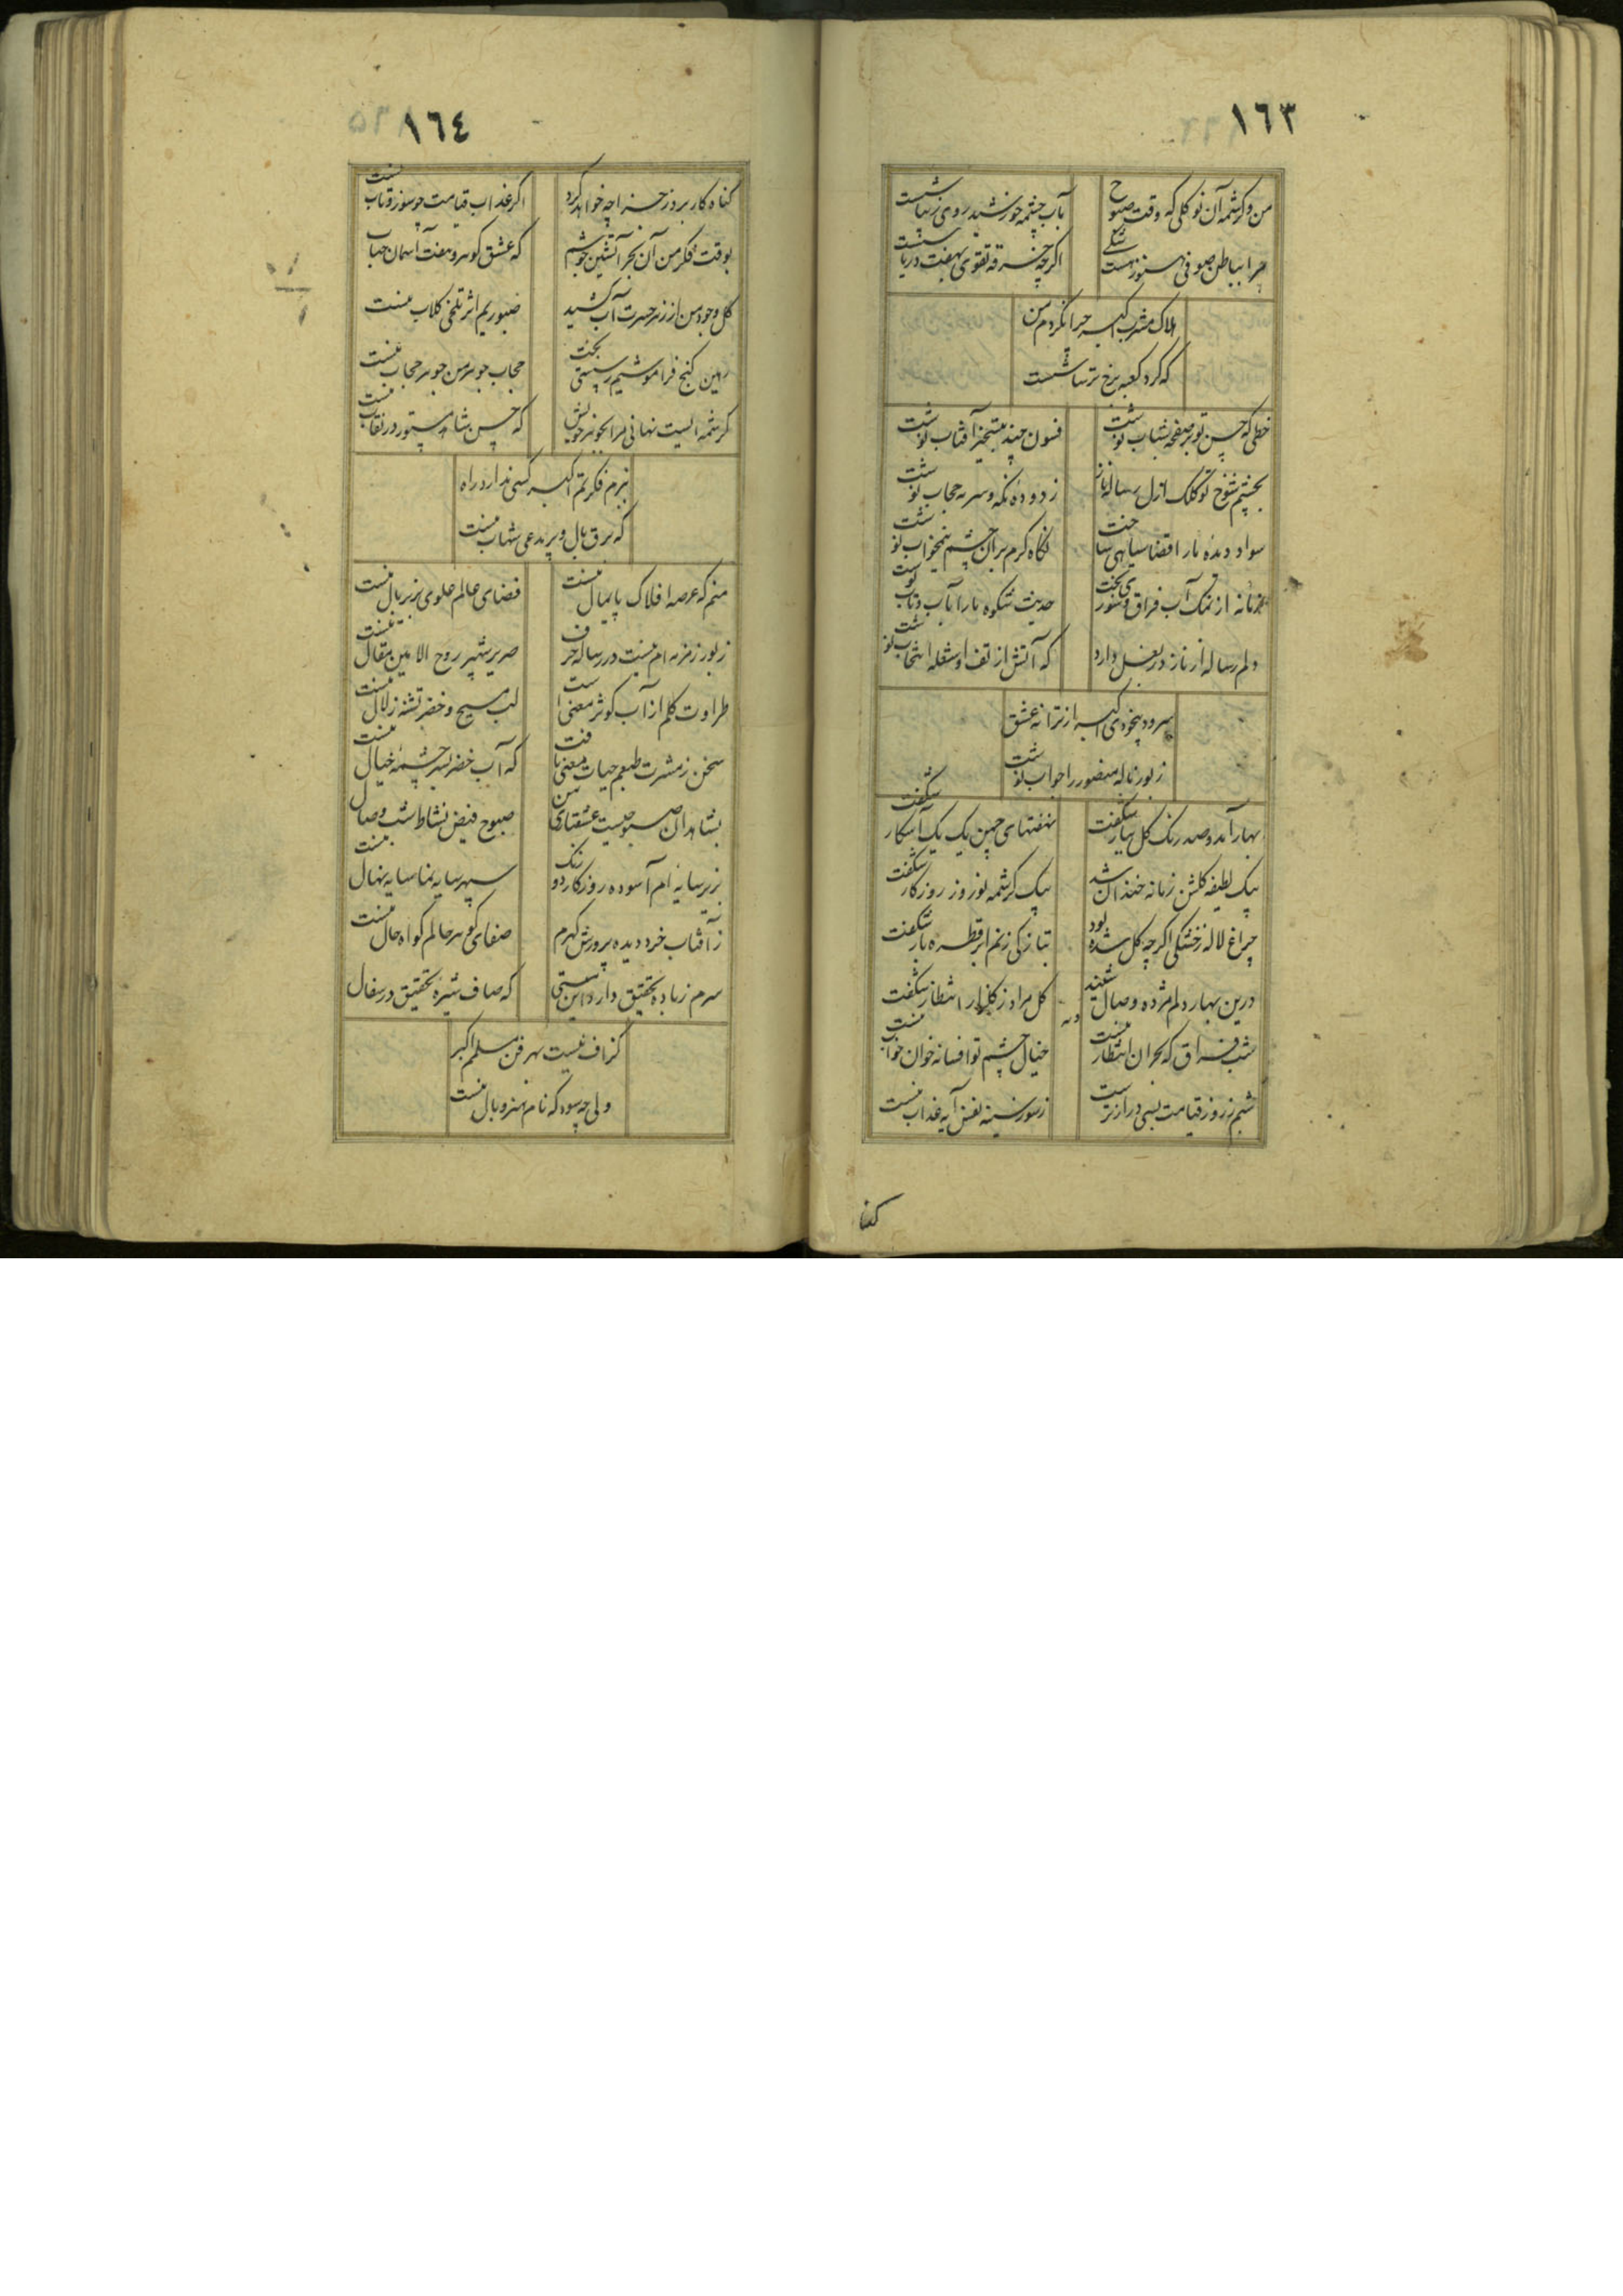 ١٦٣
من و کرشمه آن نو کلی که وقت صبوح
بآب چشمه خورشید روی زیبا شست
مرا بباطن صوفی هنوز هست شکی
اکرچه خرقه تقوی بهفت دریا شست
هلاک مشرب اکبر چرا نکردم من
که کرد کعبه برخ ترسا شست
خطی که حسن تو بر صفحه شباب نوشت
فسون چند بتسخیر آفتاب نوشت
بچشم شوخ تو کلک ازل رساله ناز
ز دوده نکه و سرمه حجاب نوشت
سواد دیده ما را قضا سیاهی ساخت
نکاه کرم بران چشم نیمخواب نوشت
زمانه از نمک آب فراق و شور
حدیث شکوه ما را بآب و تاب نوشت
دلم رساله از ناز در بغل دارد
که آتش از تف او شعله انتخاب نوشت
سرود بیخودی اکبر از ترانه عشق
زبور ناله منصور را جواب نوشت
بهار آمد و صد رنک کل ببار شکفت
نهفتهای چمن یک یک آشکار شکفت
بیک لطیفه کلشن زمانه خندان شد
بیک کرشمه نوروز روزکار شکفت
چراغ لاله ز خشکی اکرچه کل شده بود
بتازکی ز نم ابر قطره بار شکفت
درین بهار دلم مژده وصال شنید
کل مراد ز کلزار انتظار شکفت
وله
شب فراق که بحران انتظار منست
خیال چشم تو افسانه خوان خواب منست
شبم ز روز قیامت بسی درازتر است
ز سوز سینه نفس آیه عذاب منست
کنا
١٦٤
کناه کار بروز جزا چه خواهد کرد
اکر عذاب قیامت چو سوز و تاب منست
بوقت فکر من آن بحر آتشین جوشم
که عشق کوهر و هفت آسمان حباب
کل وجود من از زهر حسرت آب کشید
صبوریم اثر تلخی کلاب منست
رهین کنج فراموشیم ز پستی بخت
حجاب جوهر من جوهر حجاب منست
کرشمه ایست نهانی مرا بجوهر خویش
که حسن شاهد مستور در نقاب منست
ببزم فکرتم اکبر کسی ندارد راه
که برق بال و پر مدعی شهاب منست
منم که عرصه افلاک پایمال منست
فضای عالم علوی بزیر بال منست
زبور زمزمه ام نیست در رساله حرف
صریر شهپر روح الامین مقال منست
طراوت کلم از آب کوثر معنی است
لب مسیح و خضر تشنه زلال منست
سخن ز مشرب طبعم حیات معنی یافت
که آب خضر سرچشمه خیال منست
بشاهدان صبوحیست عشقبازی من
صبوح فیض نشاط شب وصال منست
بزیر سایه ام آسوده روزکار دو رنک
سپهر سایه نما سایه نهال
ز آفتاب خرد دیده پرورش کهرم
صفای کوهر حالم کواه حال منست
سرم ز باده تحقیق دارد این مستی
که صاف شیره تحقیق در سفال
کزاف نیست بهر فن مسلمم اکبر
ولی چه سود که نام هنر وبال منست